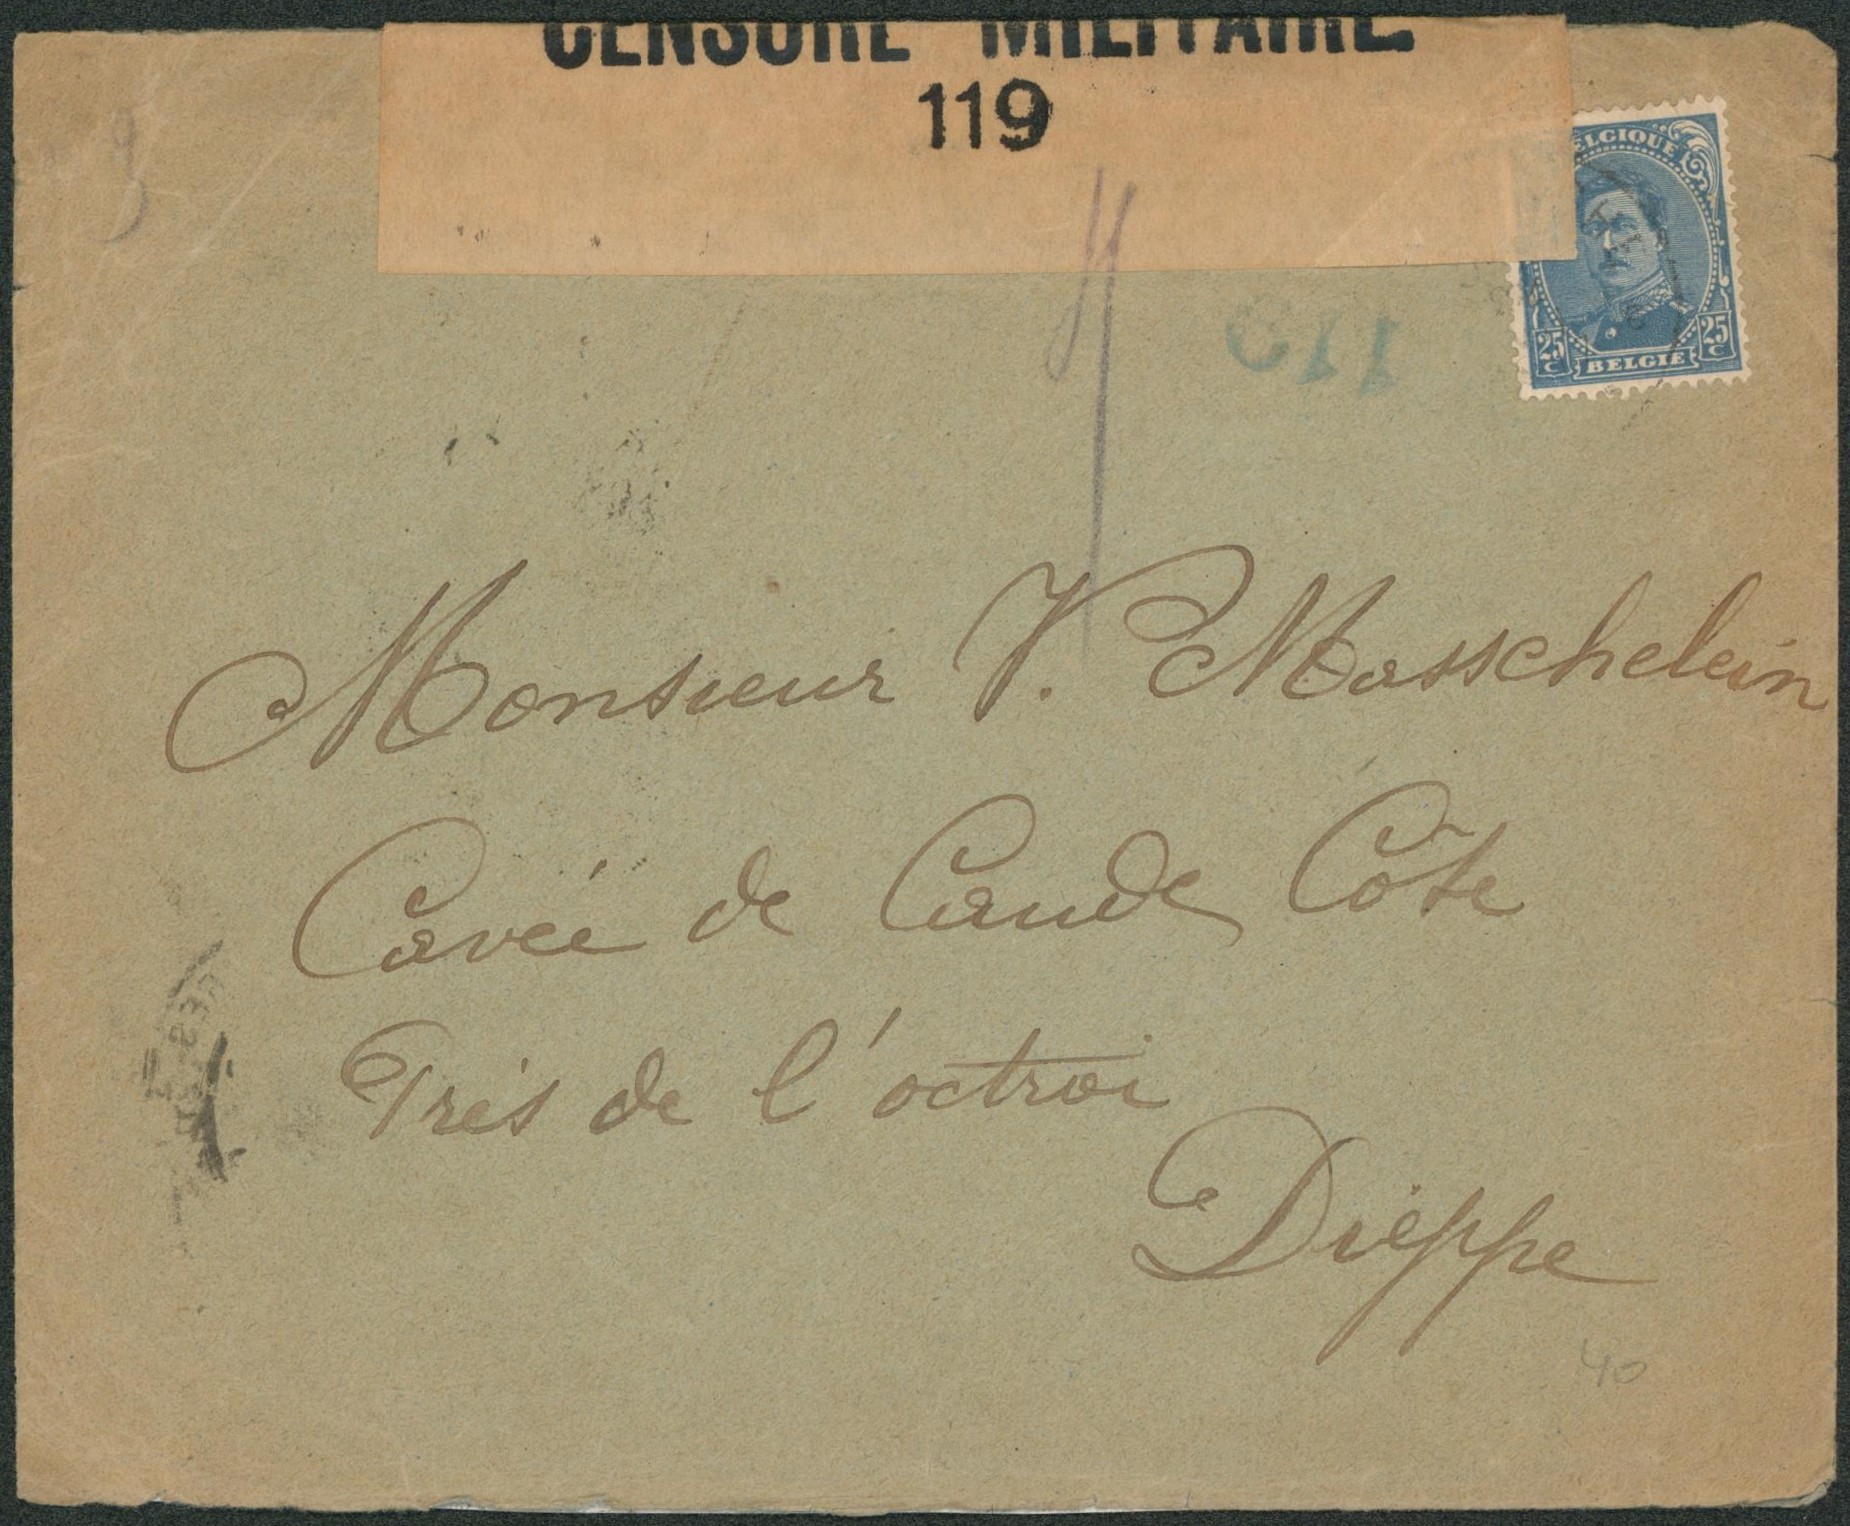 CENSURE MILITAIRE.
119
BELGIQUE
25 C BELGIE 25 C
Monsieur V. Masschelein
Cavée de Caude Côte
Près de l'octroi
Dieppe
40